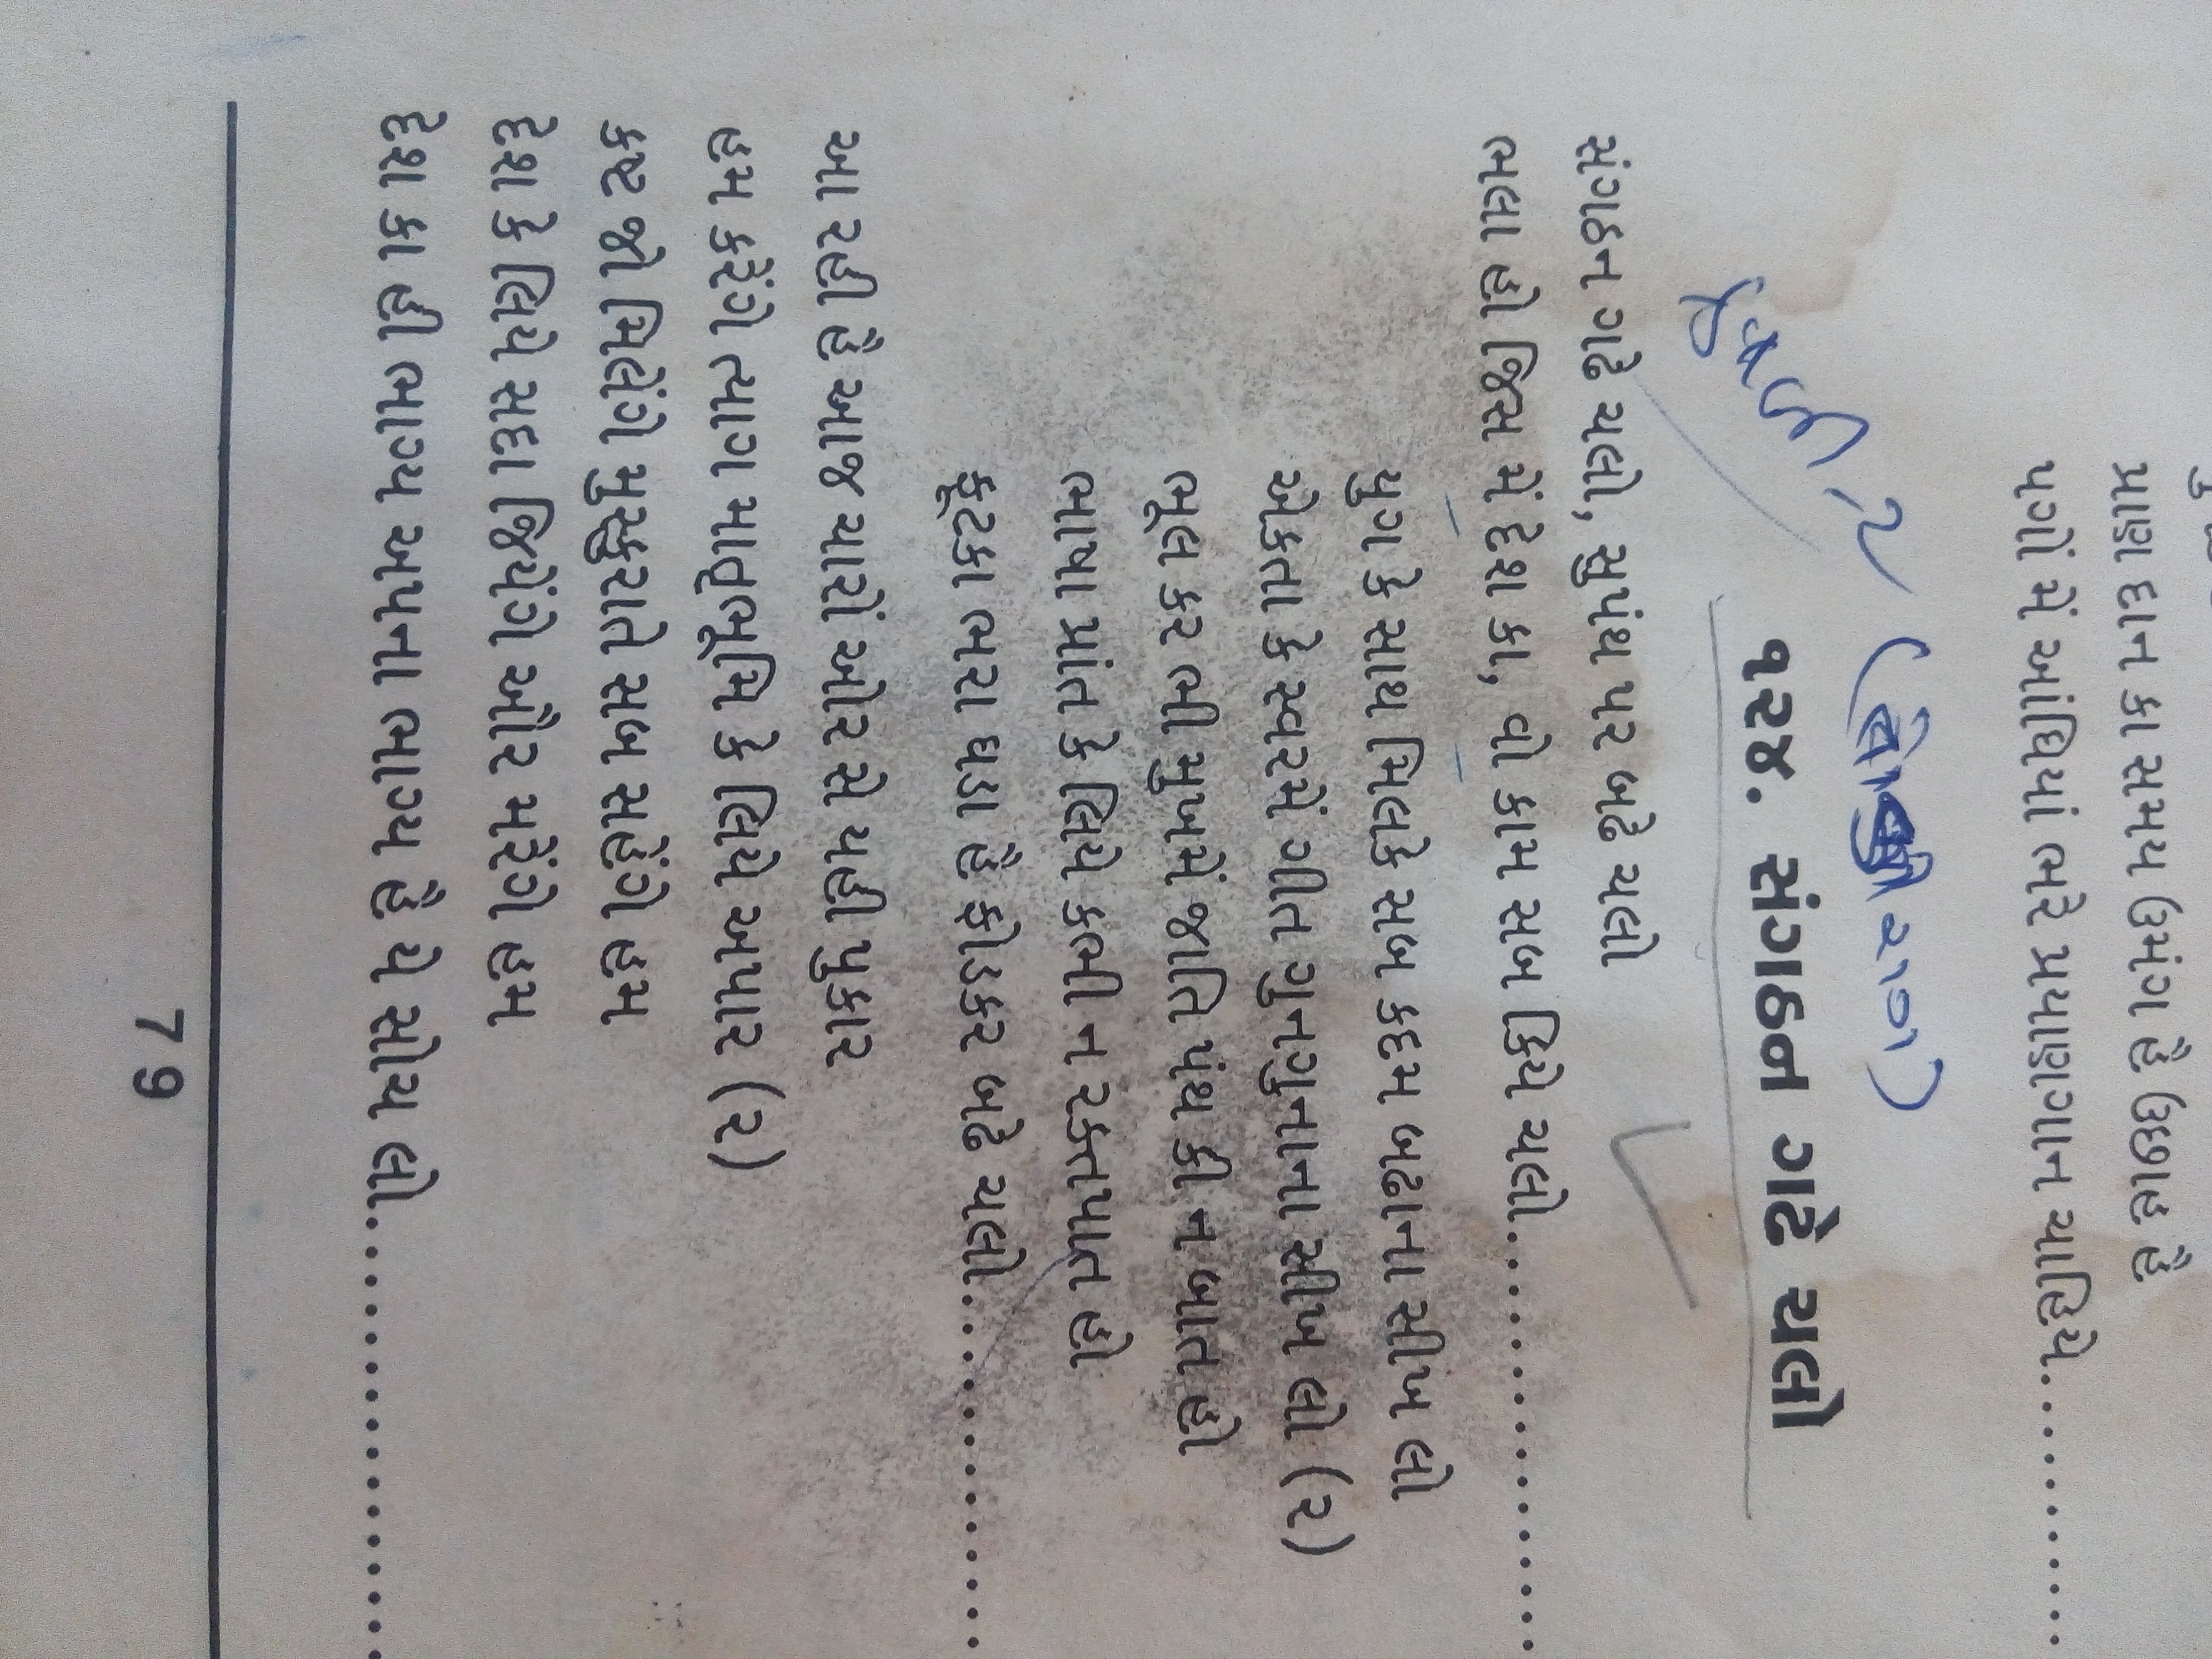 પ્રાણ દાન કા સમય ઉમંગ હૈ ઉછાહ હૈ
પગોં મેં આંધિયાં ભરે પ્રયાણગાન ચાહિયે..............
૧૨૪. સંગઠન ગઢે ચલો
સંગઠન ગઢે ચલો, સુપંથ પર બઢે ચલો
ભલા હો જિસ મેં દેશ કા, વો કામ સબ કિયે ચલો..................
યુગ કે સાથ મિલકે સબ કદમ બઢાના સીખ લો
એકતા કે સ્વરમેં ગીત ગુનગુનાના સીખ લો (૨)
ભૂલ કર ભી મુખમેં જાતિ પંથ કી ન બાત હો
ભાષા પ્રાંત કે લિયે કભી ન રક્તપાત હો
ફૂટકા ભરા ઘડા હૈ ફોડકર બઢે ચલો................
આ રહી હૈ આજ ચારોં ઓર સે યહી પુકાર
હમ કરેંગે ત્યાગ માતૃભૂમિ કે લિયે અપાર (૨)
કષ્ટ જો મિલેંગે મુસ્કુરાતે સબ સહેંગે હમ
દેશ કે લિયે સદા જિયેંગે ઔર મરેંગે હમ
દેશ કા હી ભાગ્ય અપના ભાગ્ય હૈ યે સોચ લો...................
79